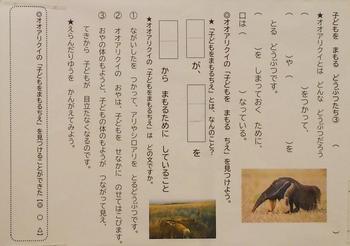 子どもを まもる どうぶつたち③ ( )
★オオアリクイとは どんな どうぶつですか?
( )や( )を
( )をつかって、
とる どうぶつです。
( )をしまっておく ために、
口は( )なっている。
◎オオアリクイの「子どもを まもる ちえ」を見つけよう。
★「子どもをまもるちえ」とは、なんのこと?
が、
を
から まもるために していること
★オオアリクイの「子どもをまもるちえ」は どの文ですか。
① ながいしたを つかって、アリやシロアリを とるどうぶつです。
② オオアリクイの おやは、子どもを せなかに のせてはこびます。
③ おやの体のもようと、子どもの体のもようが つながって見え、
てきから 子どもが 目立たなくなるのです。
★えらんだりゆうを かんがえてみよう。
◎オオアリクイの「子どもをまもるちえ」を見つけることができた【◎ ○ △】